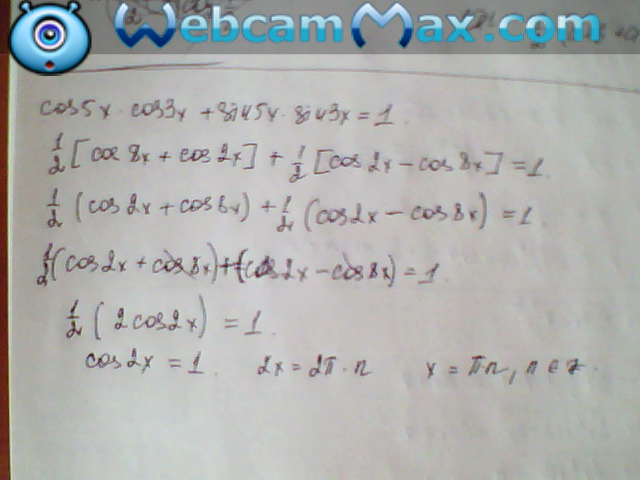 WebcamMax.com
cos5x · cos3x + sin5x · sin3x = 1.
1/2 [cos 8x + cos 2x] + 1/2 [cos 2x − cos 8x] = 1.
1/2 (cos 2x + cos 8x) + 1/2 (cos2x − cos 8x) = 1.
1/2 (cos2x + cos 8x) + (cos 2x − cos 8x) = 1.
1/2 ( 2cos2x ) = 1.
cos 2x = 1. 2x = 2π · n x = π·n, n ∈ z.